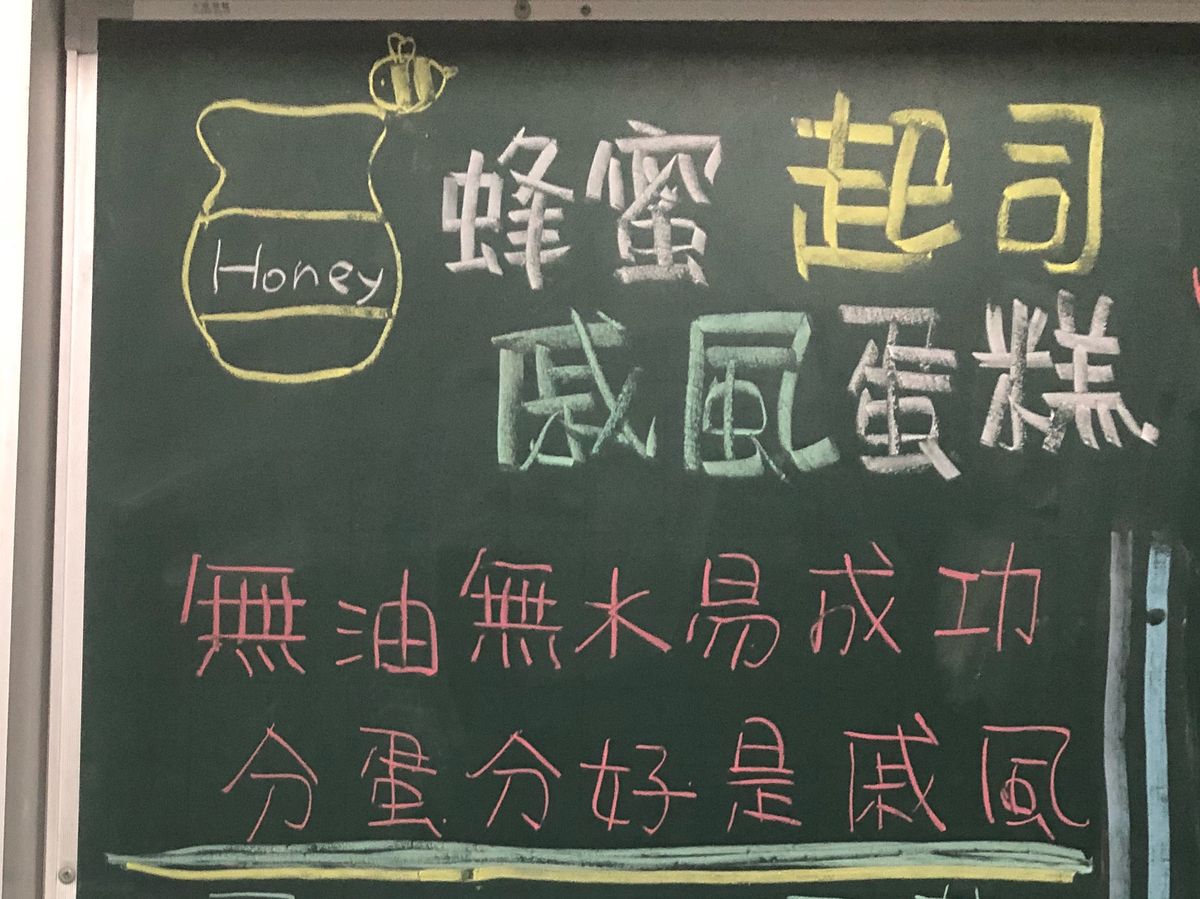 蜂蜜起司
Honey
戚風蛋糕
無油無水易成功
分蛋分好是戚風